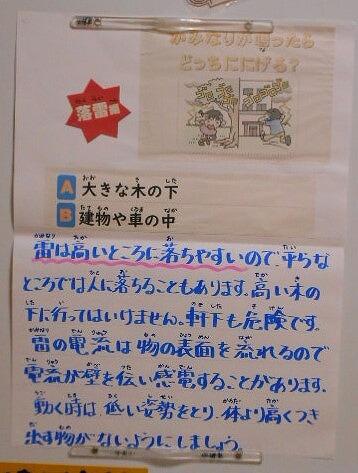 かみなりが鳴ったら
どっちににげる?
落雷編
A 大きな木の下
B 建物や車の中
雷は高いところに落ちやすいので、平らな
ところでは人に落ちることもあります。高い木の
下に行ってはいけません。軒下も危険です。
雷の電流は物の表面を流れるので
電流が壁を伝い感電することがあります。
動く時は、低い姿勢をとり、体より高くつき
出す物がないようにしましょう。